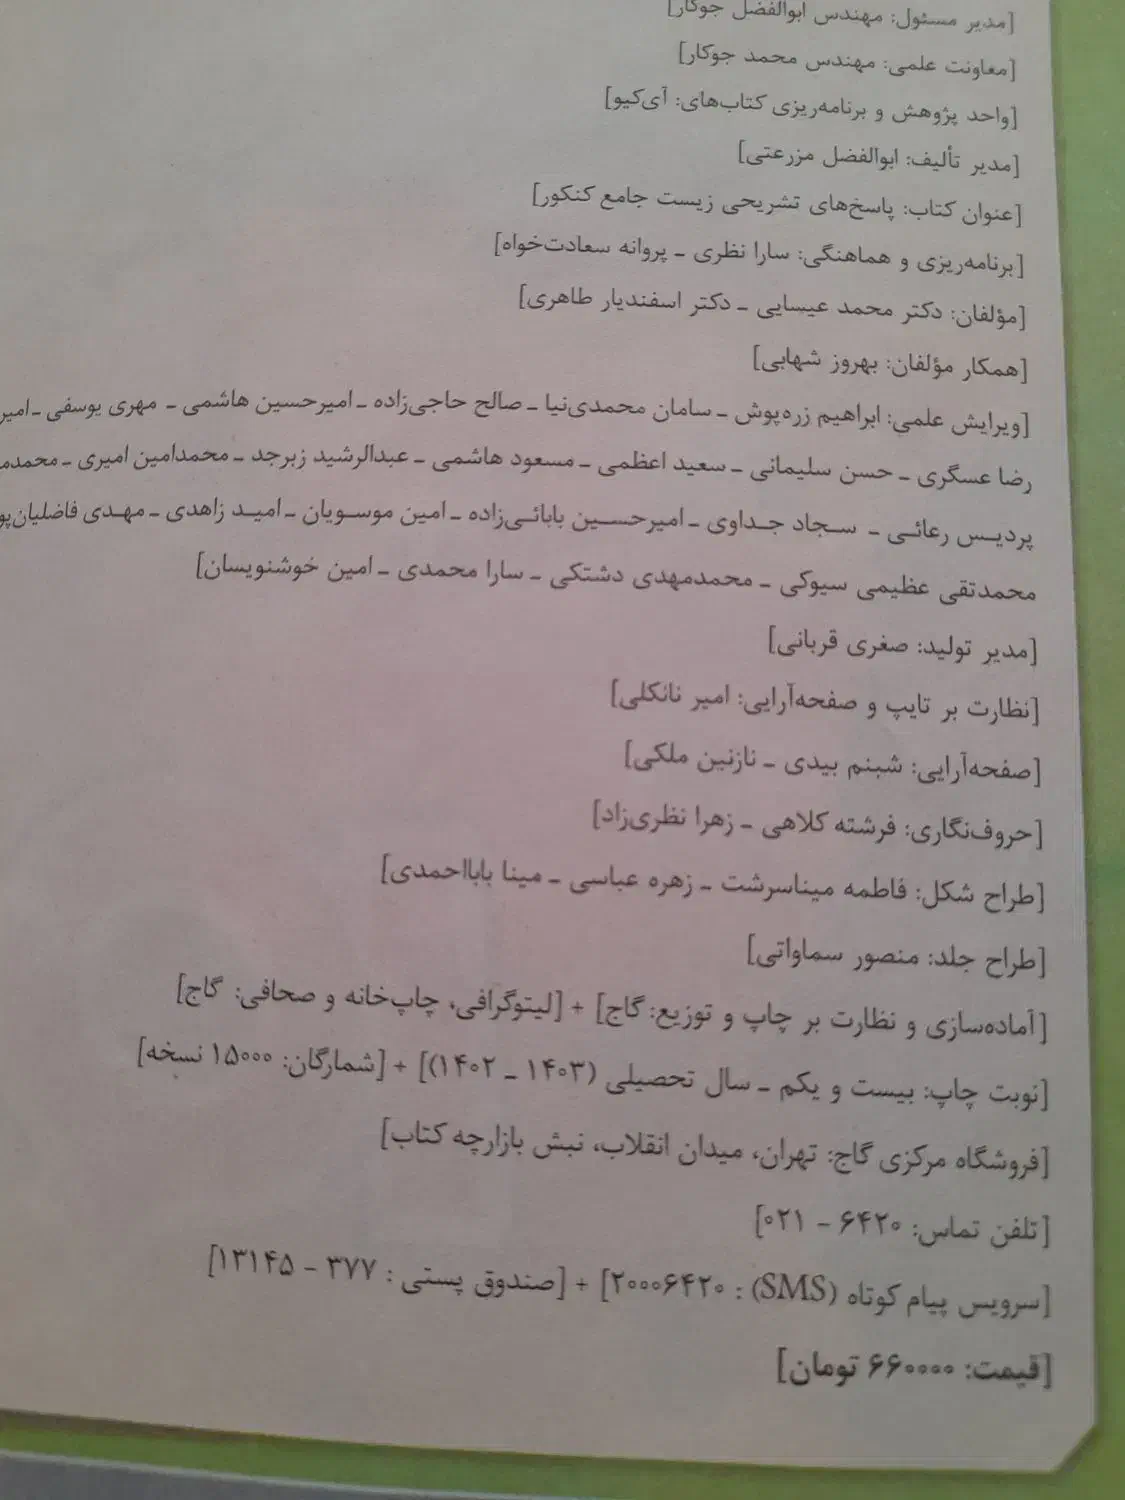 [مدیر مسئول: مهندس ابوالفضل جوکار]
[معاونت علمی: مهندس محمد جوکار]
[واحد پژوهش و برنامه‌ریزی کتاب‌های: آی‌کیو]
[مدیر تألیف: ابوالفضل مزرعتی]
[عنوان کتاب: پاسخ‌های تشریحی زیست جامع کنکور]
[برنامه‌ریزی و هماهنگی: سارا نظری ـ پروانه سعادت‌خواه]
[مؤلفان: دکتر محمد عیسایی ـ دکتر اسفندیار طاهری]
[همکار مؤلفان: بهروز شهابی]
[ویرایش علمی: ابراهیم زره‌پوش ـ سامان محمدی‌نیا ـ صالح حاجی‌زاده ـ امیرحسین هاشمی ـ مهری یوسفی ـ امیر
رضا عسگری ـ حسن سلیمانی ـ سعید اعظمی ـ مسعود هاشمی ـ عبدالرشید زبرجد ـ محمدامین امیری ـ
پردیس رعائی ـ سجاد جداوی ـ امیرحسین بابائی‌زاده ـ امین موسویان ـ امید زاهدی ـ مهدی
محمدتقی عظیمی سیوکی ـ محمدمهدی دشتکی ـ سارا محمدی ـ امین خوشنویسان]
[مدیر تولید: صغری قربانی]
[نظارت بر تایپ و صفحه‌آرایی: امیر نانکلی]
[صفحه‌آرایی: شبنم بیدی ـ نازنین ملکی]
[حروف‌نگاری: فرشته کلاهی ـ زهرا نظری‌زاد]
[طراح شکل: فاطمه میناسرشت ـ زهره عباسی ـ مینا بابااحمدی]
[طراح جلد: منصور سماواتی]
[آماده‌سازی و نظارت بر چاپ و توزیع: گاج] + [لیتوگرافی، چاپ‌خانه و صحافی: گاج]
[نوبت چاپ: بیست و یکم ـ سال تحصیلی (۱۴۰۳ ـ ۱۴۰۲)] + [شمارگان: ۱۵۰۰۰ نسخه]
[فروشگاه مرکزی گاج: تهران، میدان انقلاب، نبش بازارچه کتاب]
[تلفن تماس: ۶۴۲۰ - ۰۲۱]
[سرویس پیام کوتاه (SMS) : ۲۰۰۰۶۴۲۰] + [صندوق پستی : ۳۷۷ - ۱۳۱۴۵]
[قیمت: ۶۶۰۰۰۰ تومان]